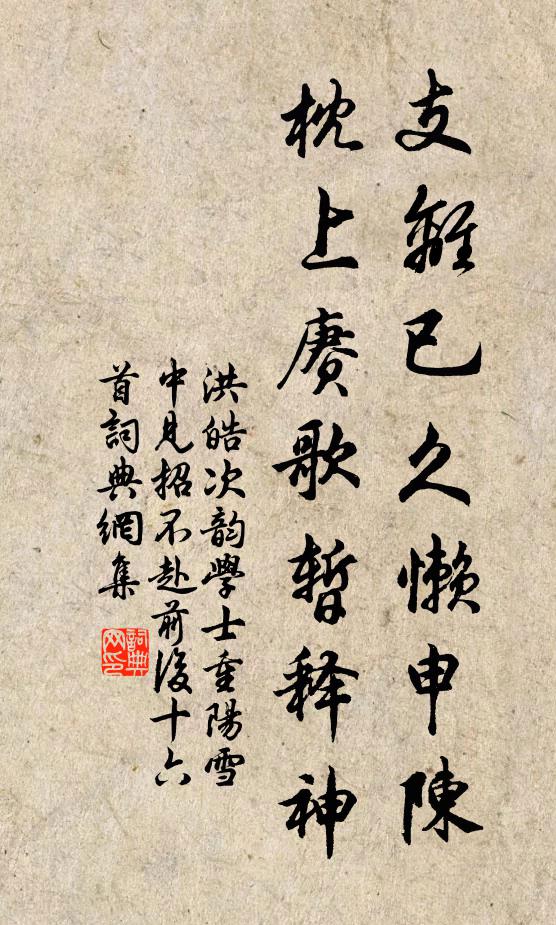 支離已久懶申陳
枕上賡歌暫釋神
洪皓次韵學士重陽雪
中見招不赴前後十六
首詞典網集
詞典
网印